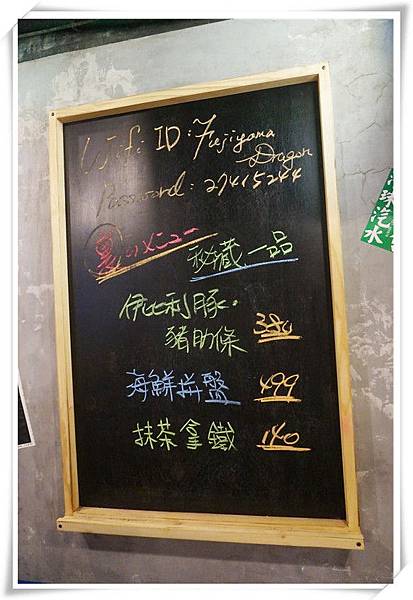 Wifi ID: Fujiyama
Dragon
Password: 27415244
夏のメニュー
秘藏一品
伊比利豚・
豬肋條 380
海鮮拼盤 499
抹茶拿鐵 140
彈珠汽水